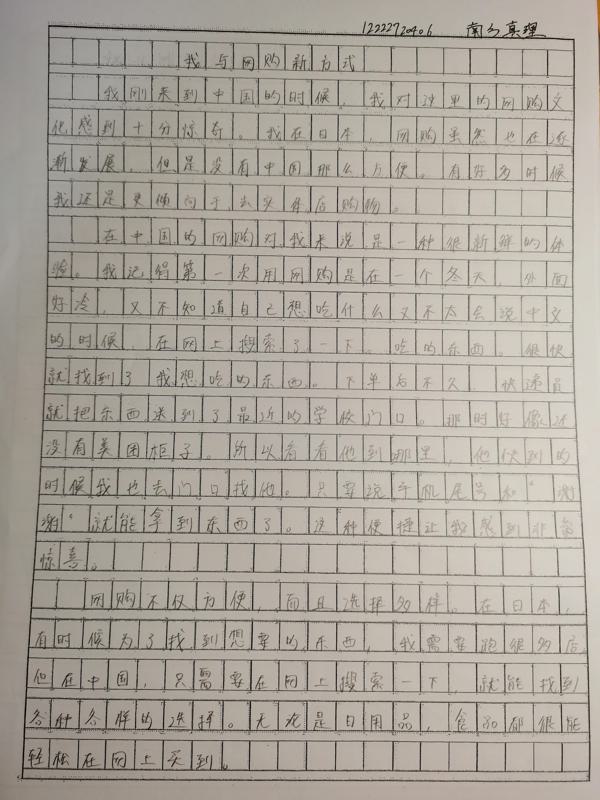 1222720406 南乡真理
我与网购新方式
我刚来到中国的时候，我对这里的网购文
化感到十分惊奇。我在日本，网购虽然也在逐
渐发展，但是没有中国那么方便。有好多时候
我还是更倾向于去实体店购物。
在中国的网购对我来说是一种很新鲜的体
验。我记得第一次用网购是在一个冬天，外面
好冷，又不知道自己想吃什么又不太会说中文
的时候，在网上搜索了一下。吃的东西。很快
就找到了我想吃的东西。下单后不久，快递员
就把东西送到了最近的学校门口。那时好像还
没有美团柜子。所以看看他到哪里，他快到的
时候我也去门口找他。只要说手机尾号和“谢
谢”就能拿到东西了。这种便捷让我感到非常
惊喜。
网购不仅方便，而且选择多样。在日本，
有时候为了找到想要的东西，我需要跑很多店
但在中国，只需要在网上搜索一下，就能找到
各种各样的选择。无论是日用品，食品都很能
轻松在网上买到。